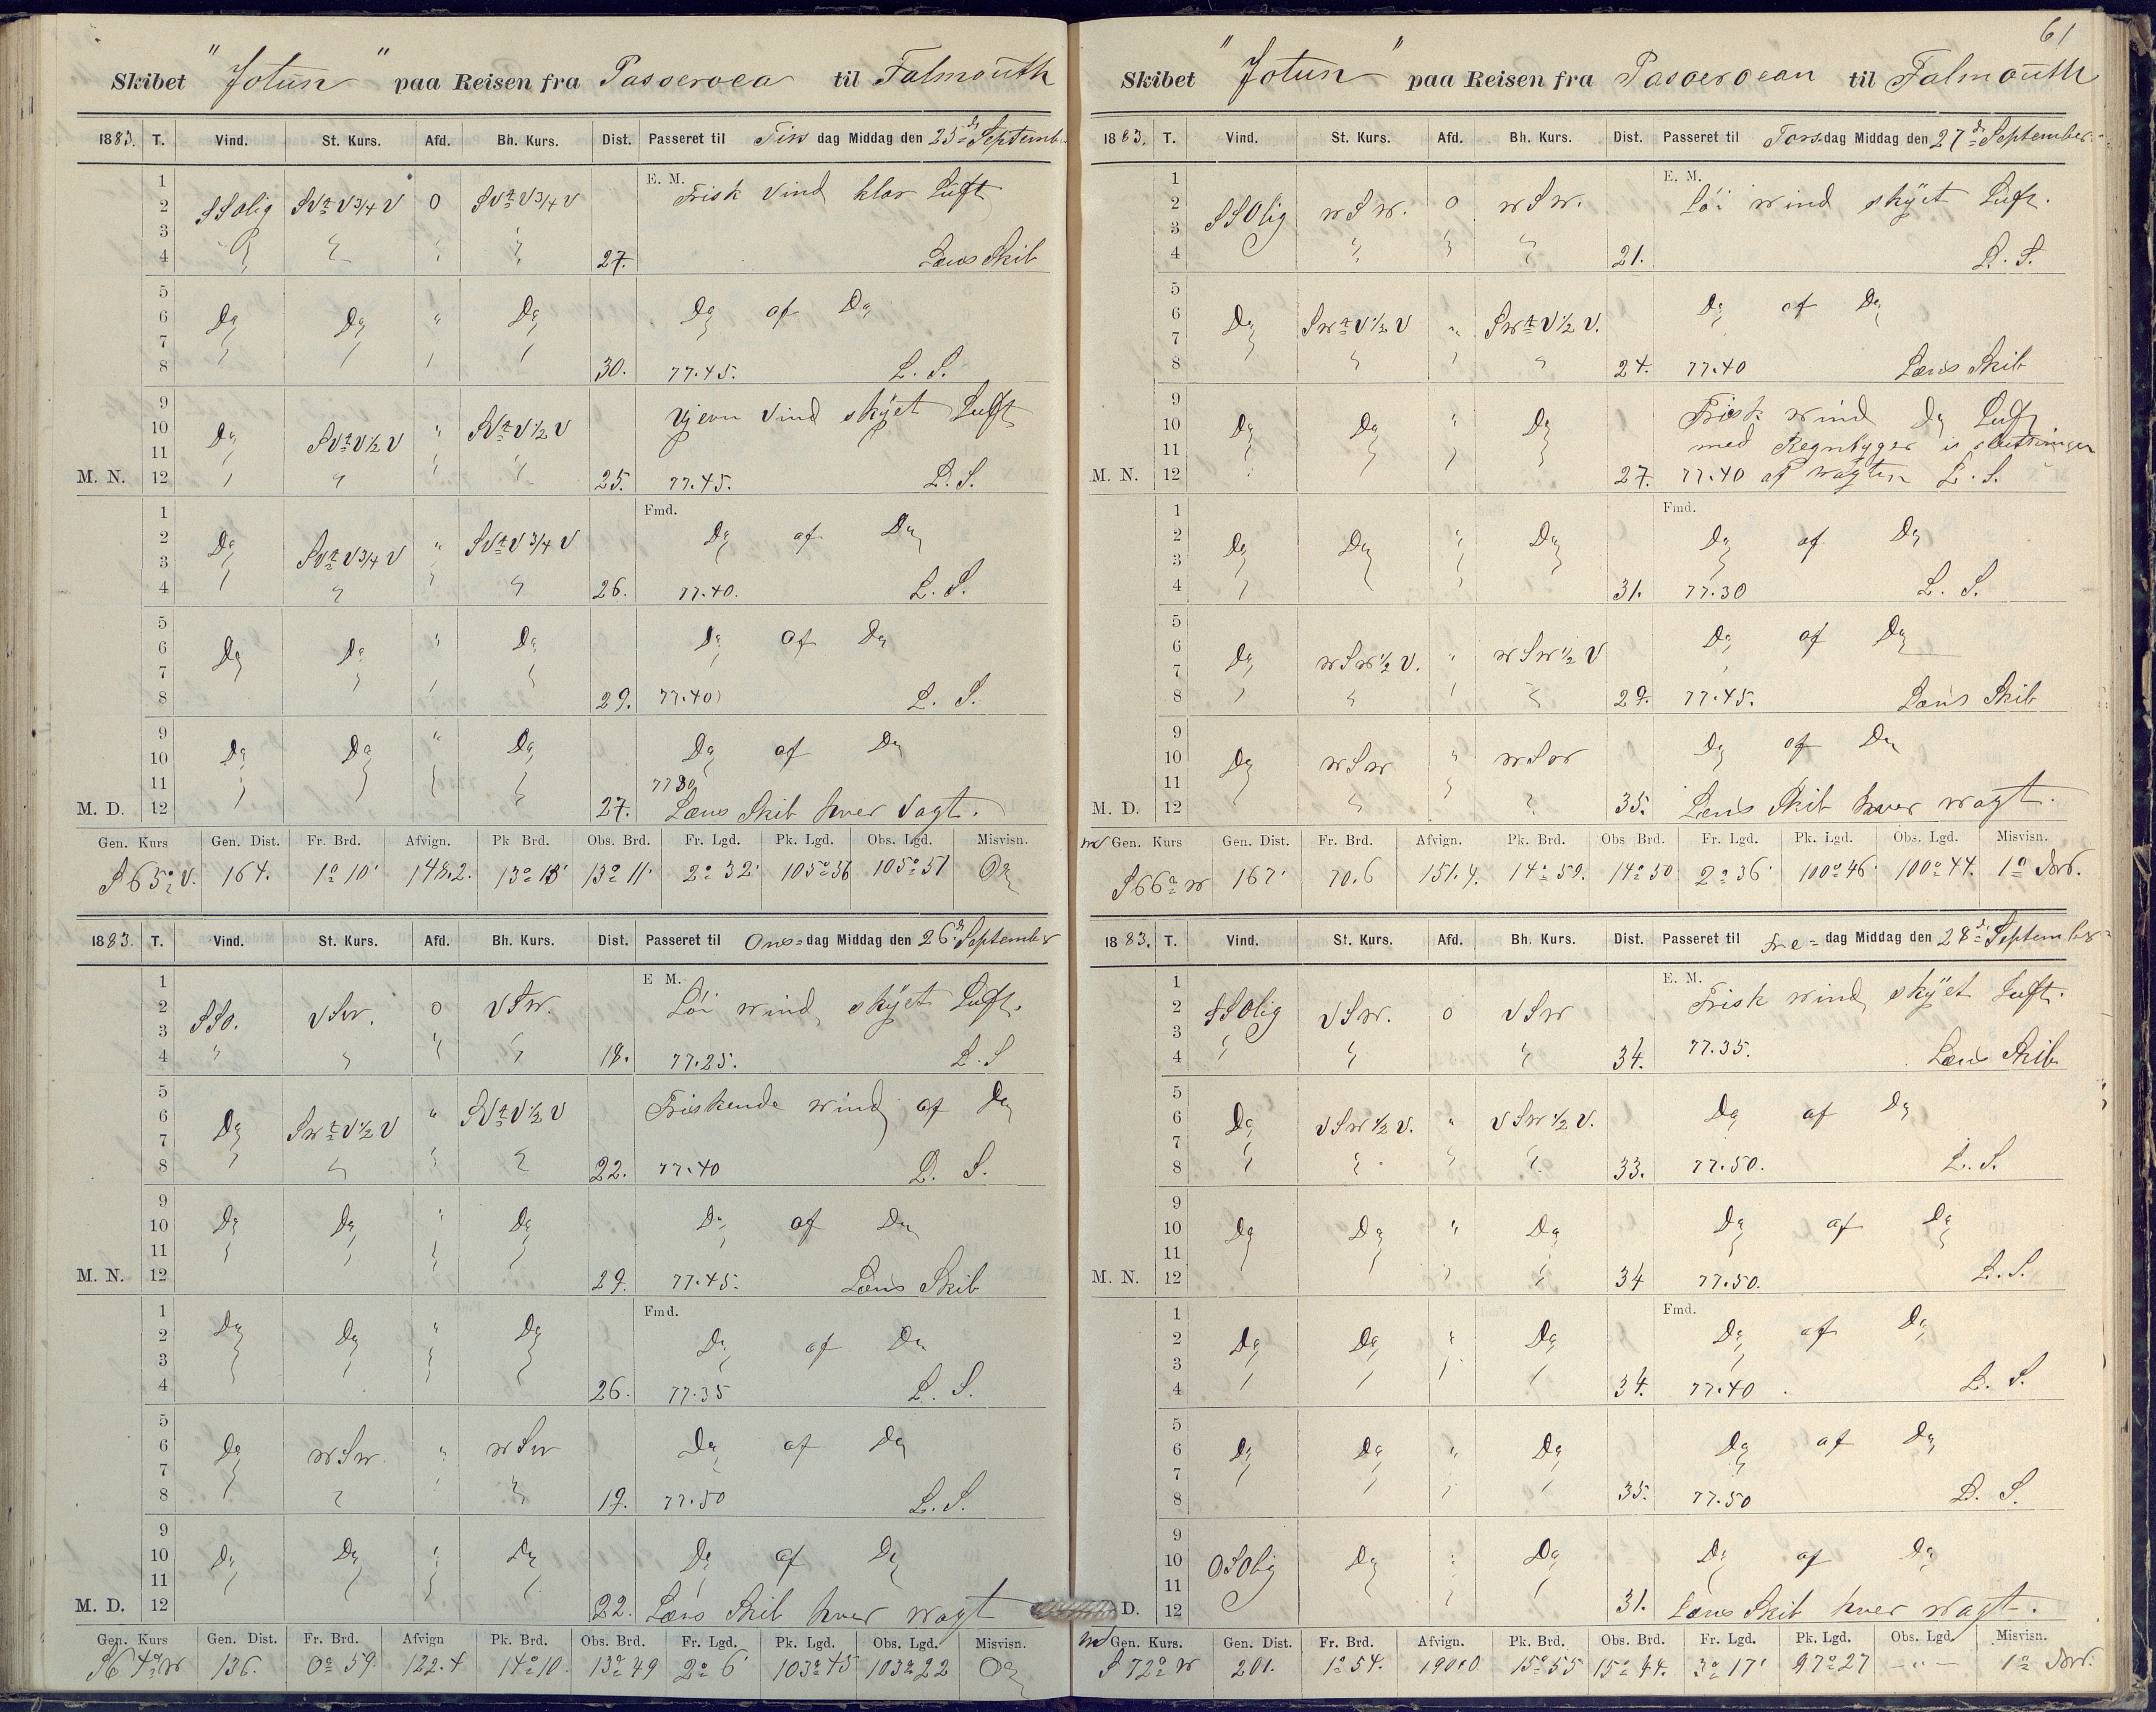 Skibet "Jotun" paa Reisen fra Passeroea til Falmouth
1883. T. Vind. St. Kurs. Afd. Bh. Kurs. Dist. Passeret til Tirs dag Middag den 25d September
E. M.
1 2 3 4 SSOlig SVtV3/4V 0 SVtV3/4V 27. Frisk Vind klar Luft
Læns Skib
5 6 7 8 Do Do " Do 30. Do af Do
77.45. L. S.
9 10 11 M. N. 12 Do SVtV1/2V " SVtV1/2V 25. Vjevn Vind skyet Luft
77.45. L. S.
Fmd.
1 2 3 4 Do SVtV3/4V " SVtV3/4V 26. Do af Do
77.40. L. S.
5 6 7 8 Do Do " Do 29. Do af Do
77.40 L. S.
9 10 11 M. D. 12 Do Do " Do 27. Do af Do
7730
Læns Skib hver Vagt.
Gen. Kurs Gen. Dist. Fr. Brd. Afvign. Pk Brd. Obs. Brd. Fr. Lgd. Pk. Lgd. Obs. Lgd. Misvisn.
S 65° V. 164. 1° 10' 148.2. 13° 13' 13° 11' 2° 32' 105° 36 105° 51 0°
1883. T. Vind. St. Kurs. Afd. Bh. Kurs. Dist. Passeret til Ons= dag Middag den 26d September
E M.
1 2 3 4 SSO. VSw. 0 VSw. 18. Löi wind skyet Luft.
77.25. L. S
5 6 7 8 Do SwtV1/2V " SVtV1/2V 22. Friskende wind af Do
77.40 L. S.
9 10 11 M. N. 12 Do Do " Do 29. Do af Do
77.45. Læns Skib
Fmd.
1 2 3 4 Do Do " Do 26. Do af Do
77.35 L. S.
5 6 7 8 Do wSw. " wSw 19. Do af Do
77.50 L. S.
9 10 11 M. D. 12 Do Do " Do 22. Do af Do
Læns Skib hver wagt
Gen. Kurs Gen. Dist. Fr. Brd. Afvign Pk. Brd. Obs. Brd. Fr. Lgd. Pk. Lgd. Obs. Lgd. Misvisn.
S 64° w 136. 0° 59. 122.4 14° 10. 13° 49 2° 6' 103° 45 103° 22 0°
61
Skibet "Jotun" paa Reisen fra Pasoeroean til Falmouth
1883. T. Vind. St. Kurs. Afd. Bh. Kurs. Dist. Passeret til Tors=dag Middag den 27d September
E. M.
1 2 3 4 SSOlig wSw. 0 wSw. 21. Löi wind skyet Luft.
L. S.
5 6 7 8 Do SwtV1/2V " SwtV1/2V. 24. Do af Do
77.40 Læns Skib
9 10 11 M. N. 12 Do Do " Do 27. Frisk wind Do Luft
med Regnbyger i
77.40 af wagten L. S.
Fmd.
1 2 3 4 Do Do " Do 31. Do af Do
77.30 L. S.
5 6 7 8 Do wSw1/2V. " wSw1/2V 29. Do af Do
77.45. Læns Skib
9 10 11 M. D. 12 Do wSw " wSw 35. Do af Do
Læns Skib hver wagt.
Gen. Kurs Gen. Dist. Fr. Brd. Afvign. Pk. Brd. Obs Brd. Fr. Lgd. Pk. Lgd. Obs. Lgd. Misvisn.
S66° w 167' 70.6 151.4. 14° 59. 14° 50 2° 36' 100° 46' 100° 44. 1°
1883. T. Vind. St. Kurs. Afd. Bh. Kurs. Dist. Passeret til Fre= dag Middag den 28d September
E. M.
1 2 3 4 SSOlig VSw. 0 VSw 34. Frisk wind skyet Luft.
77.35. Læns Skib
5 6 7 8 Do VSw1/2V. " VSw1/2V. 33. Do af Do
77.50. L. S.
9 10 11 M. N. 12 Do Do " Do 34 Do af Do
77.50. L. S.
Fmd.
1 2 3 4 Do Do " Do 34. Do af Do
77.40 L. S.
5 6 7 8 Do Do " Do 35. Do af Do
77.50 L. S.
9 10 11 D. 12 OSOlig Do " Do 31. Do af Do
Læns Skib hver wagt.
Gen. Kurs. Gen. Dist. Fr. Brd. Afvign. Pk. Brd. Obs. Brd. Fr. Lgd. Pk. Lgd. Obs. Lgd Misvisn.
S 72° w 201. 1° 54. 190.0 15° 55 15° 44. 3° 17' 97° 27 —"— 1°